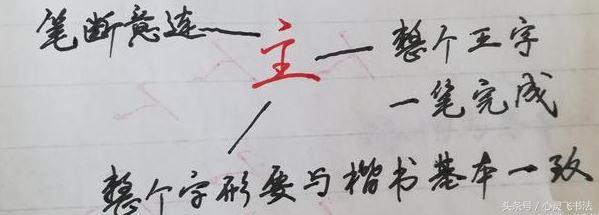 笔断意连 主 整个王字
一笔完成
整个字形要与楷书基本一致
头条号／心灵飞书法